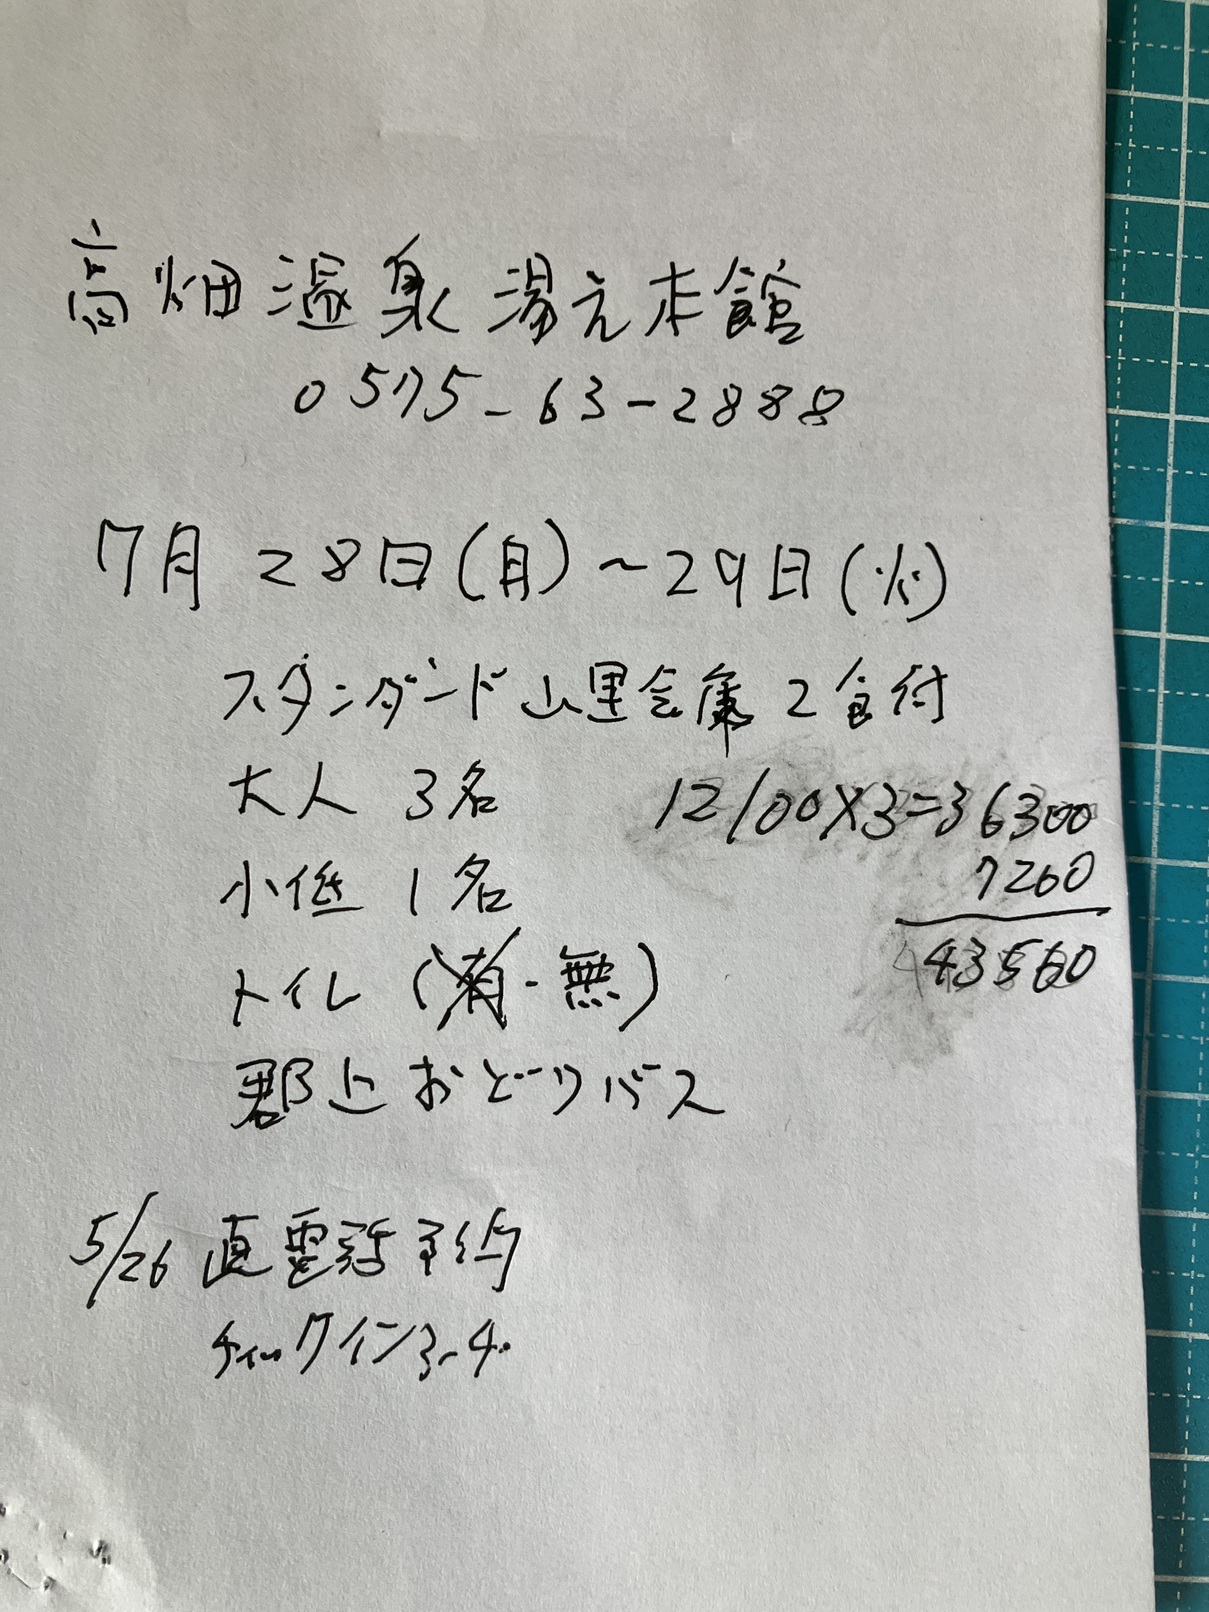 高畑温泉 湯元本館
0575-63-2888
7月28日(月)~29日(火)
スタンダード山里会席 2食付
大人 3名 12100×3=36300
小低 1名 7260
43560
トイレ (有・無)
郡上おどりバス
5/26 直電話予約
チェックイン3~4.